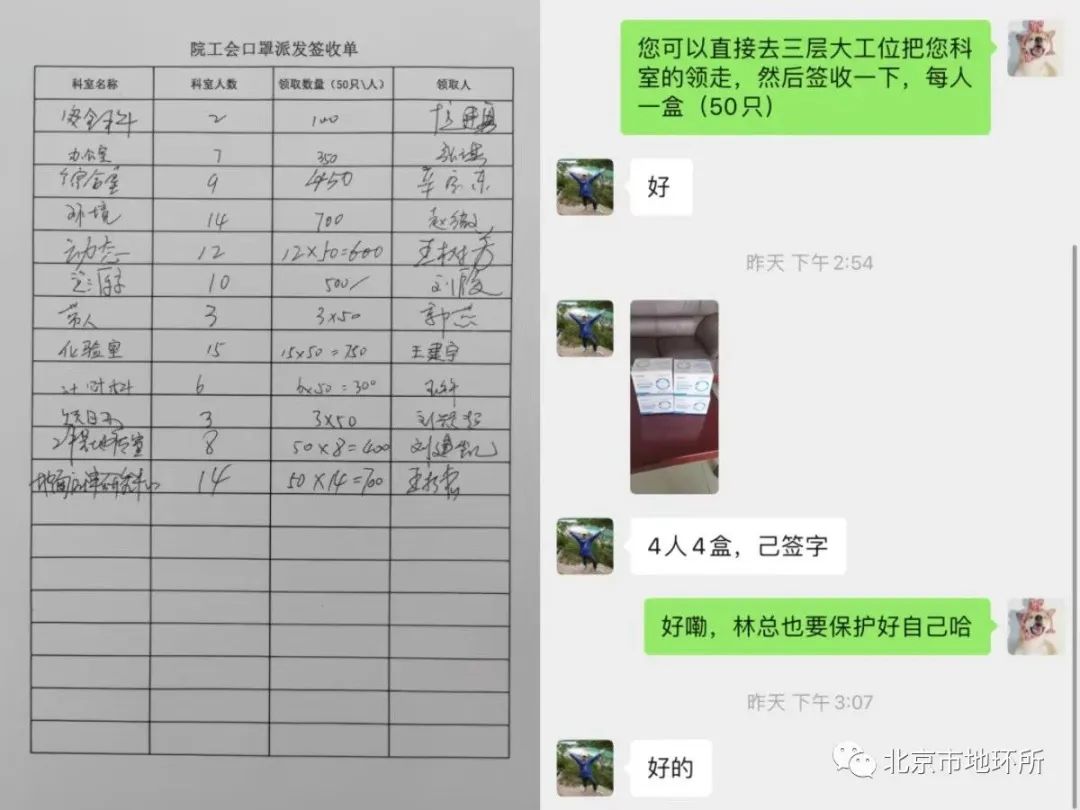 院工会口罩派发签收单
科室名称 科室人数 领取数量（50只\人） 领取人
安全科 2 100
办公室 7 350
综合室 9 450 辛宗东
环境 14 700
动态 12 12×50=600
10 500
3 3×50
化验室 15 15×50=750 王建宇
6 6×50=300
3 3×50
8 50×8=400
14 50×14=700
您可以直接去三层大工位把您科
室的领走，然后签收一下，每人
一盒（50只）
好
昨天 下午2:54
4人4盒，己签字
好嘞，林总也要保护好自己哈
昨天 下午3:07
好的
北京市地环所